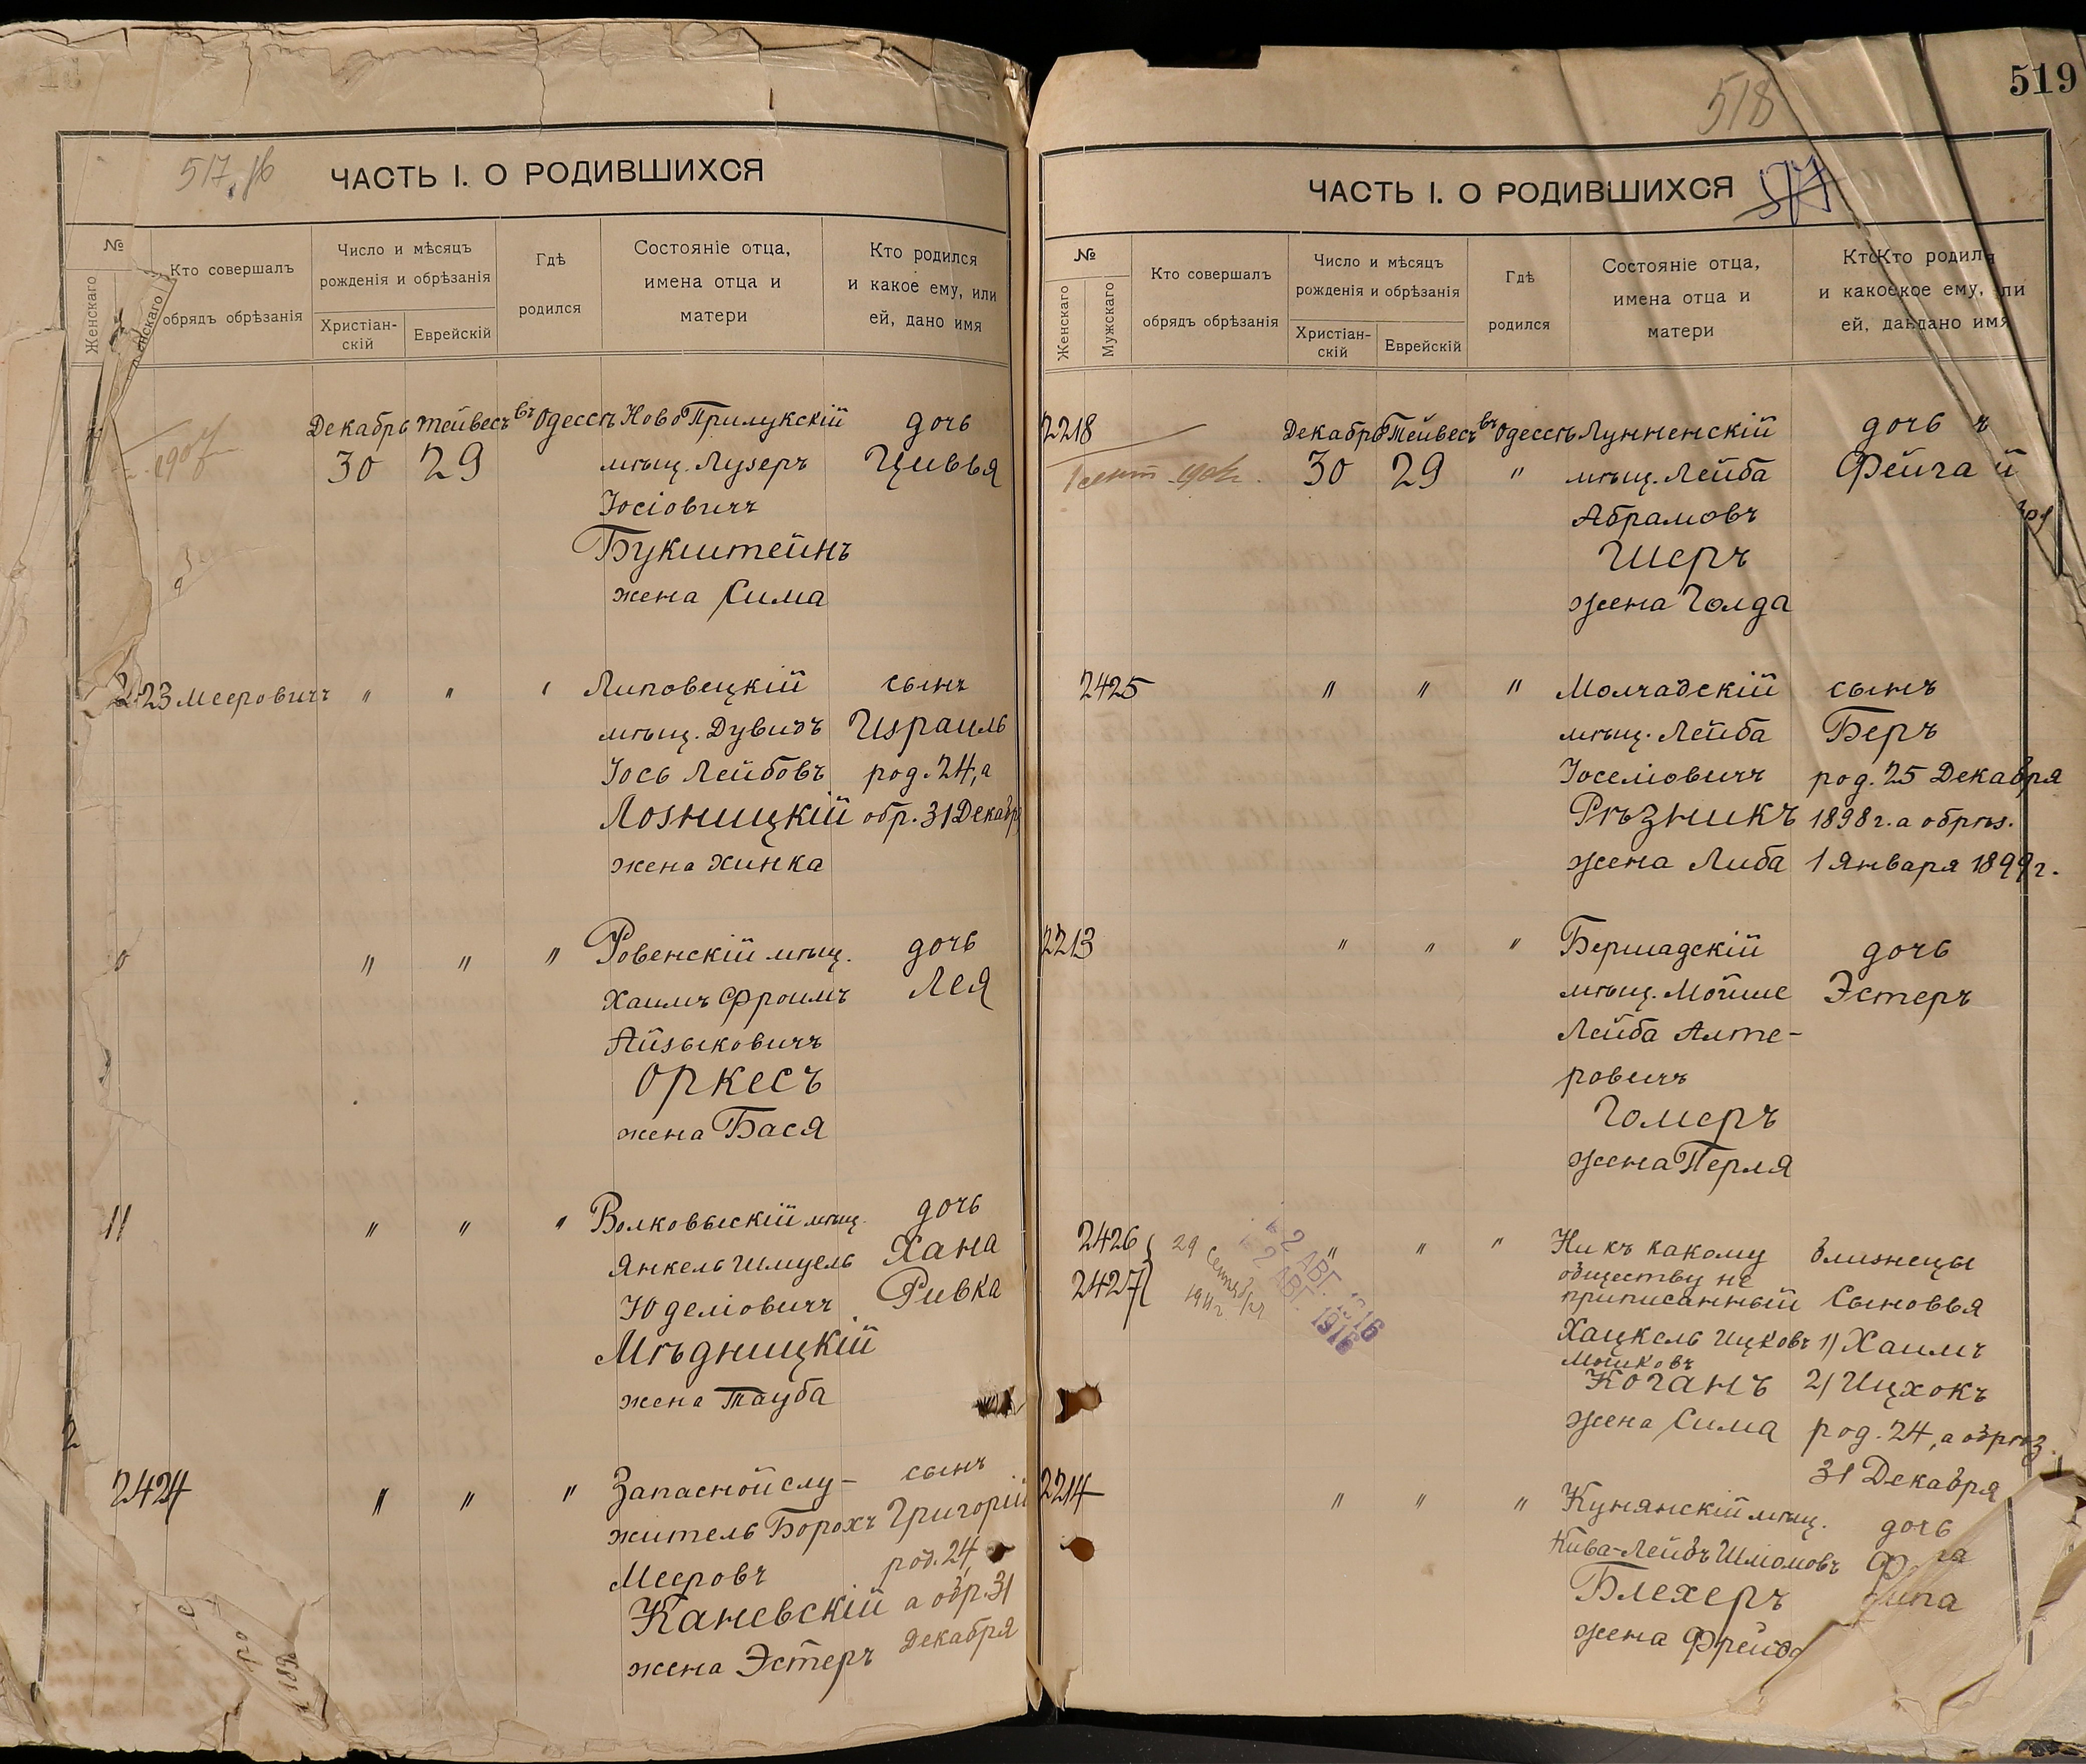 517 об
ЧАСТЬ I. О РОДИВШИХСЯ
№
Женскаго
Кто совершалъ
обрядъ обрѣзанія
Число и мѣсяцъ
рожденія и обрѣзанія
Христіан-
скій
Еврейскій
Гдѣ
родился
Состояніе отца,
имена отца и
матери
Кто родился
и какое ему, или
ей, дано имя
Декабрь Тейвесъ въ Одессѣ Ново Прилукскій дочь
30 29 мѣщ. Лузеръ Цивья
Іосіовичъ
Букштейнъ
жена Сима
23 Мееровичъ " " " Липовецкій сынъ
мѣщ. Дувидъ Израиль
Іось Лейбовъ род. 24, а
Лозницкій обр. 31 Декабр
жена Хинка
" " " Ровенскій мѣщ. дочь
Хаимъ Фроимъ Лея
Айзыковичъ
Оркесъ
жена Бася
11 " " " Волковыскій мѣщ. дочь
Янкель Шмуель Хана
Юделіовичъ Ривка
Мѣдницкій
жена Тауба
2
2424 " " " Запасной слу- сынъ
житель Борохъ Григорій
Мееровъ род. 24,
Каневскій а обр. 31
жена Эстеръ Декабря
519
518
ЧАСТЬ I. О РОДИВШИХСЯ
№
Женскаго
Мужскаго
Кто совершалъ
обрядъ обрѣзанія
Число и мѣсяцъ
рожденія и обрѣзанія
Христіан-
скій
Еврейскій
Гдѣ
родился
Состояніе отца,
имена отца и
матери
Кто родился
и какое ему, или
ей, дано имя
2218 Декабрь Тейвесъ въ Одессѣ Лунненскій дочь
30 29 " мѣщ. Лейба Фейга
Абрамовъ
Шеръ
жена Голда
2425 " " " Молчадскій сынъ
мѣщ. Лейба Беръ
Іоселіовичъ род. 25 Декабря
Рѣзникъ 1898 г. а обрѣз.
жена Либа 1 Января 1899 г.
2213 " " " Бершадскій дочь
мѣщ. Мойше Эстеръ
Лейба Алте-
ровичъ
Гомеръ
жена Перля
2426 29 Сентября " " " Ни къ какому близнецы
2427 1911 г. обществу не
приписанный Сыновья
2 АВГ. 1916
2 АВГ. 1916
Хацкель Ицковъ 1) Хаимъ
Мошковъ
Коганъ 2) Ицхокъ
жена Сима род. 24, а обрѣз.
31 Декабря
2214 " " " Кунянскій мѣщ. дочь
Кива-Лейбъ Шломовъ
Блехеръ
жена